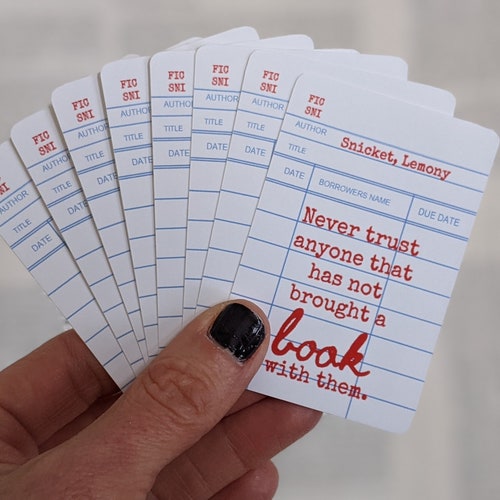 FIC
SNI
AUTHOR
TITLE
DATE
FIC
SNI
AUTHOR
TITLE
DATE
FIC
SNI
AUTHOR
TITLE
DATE
FIC
SNI
AUTHOR
TITLE
DATE
FIC
SNI
AUTHOR
TITLE
DATE
FIC
SNI
AUTHOR
TITLE
DATE
FIC
SNI
AUTHOR
TITLE
DATE
FIC
SNI
AUTHOR Snicket, Lemony
TITLE
DATE BORROWERS NAME DUE DATE
Never trust
anyone that
has not
brought a
book
with them.